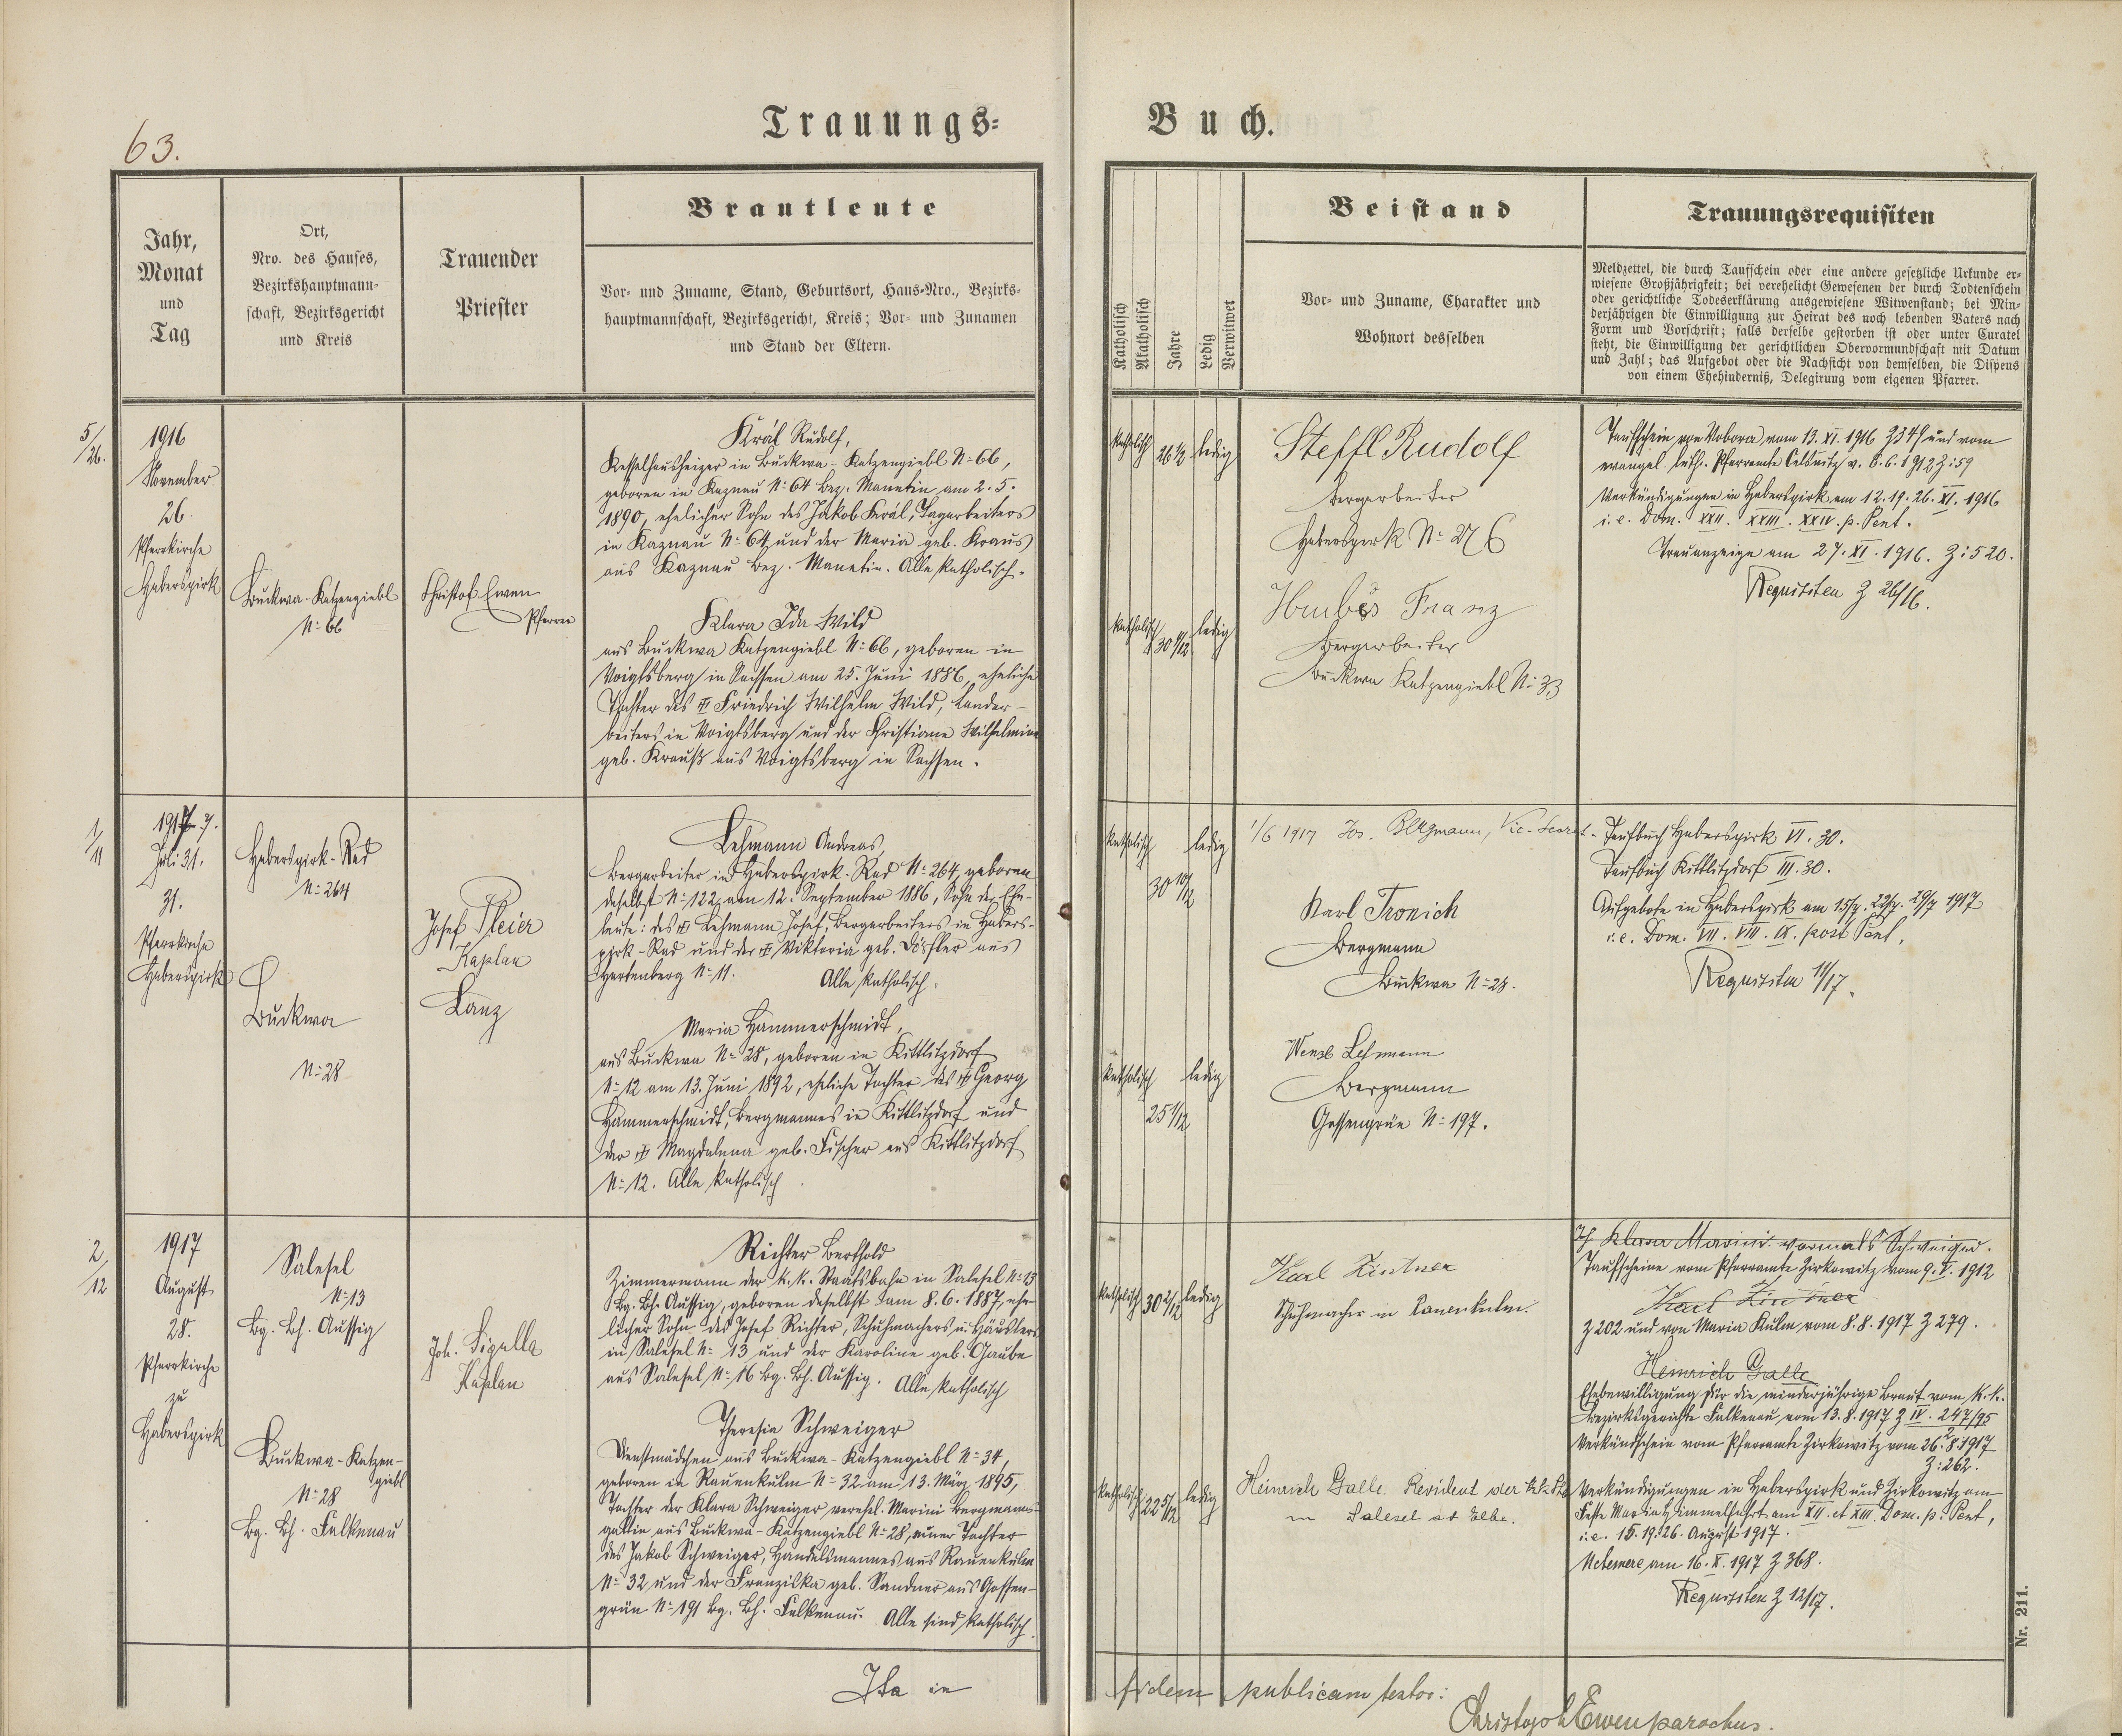 63.
Trauungs-
Buch.
Jahr,
Monat
und
Tag
Ort,
Nro. des Hauses,
Bezirkshauptmann-
schaft, Bezirksgericht
und Kreis
Trauender
Priester
Brautleute
Vor- und Zuname, Stand, Geburtsort, Haus-Nro., Bezirks-
hauptmannschaft, Bezirksgericht, Kreis; Vor- und Zunamen
und Stand der Eltern.
Katholisch
Akatholisch
Jahre
Ledig
Verwitwet
Beistand
Vor- und Zuname, Charakter und
Wohnort desselben
Trauungsrequisiten
Meldzettel, die durch Taufschein oder eine andere gesetzliche Urkunde er-
wiesene Großjährigkeit; bei verehelicht Gewesenen der durch Todtenschein
oder gerichtliche Todeserklärung ausgewiesene Witwenstand; bei Min-
derjährigen die Einwilligung zur Heirat des noch lebenden Vaters nach
Form und Vorschrift; falls derselbe gestorben ist oder unter Curatel
steht, die Einwilligung der gerichtlichen Obervormundschaft mit Datum
und Zahl; das Aufgebot oder die Nachsicht von demselben, die Dispens
von einem Ehehinderniß, Delegirung vom eigenen Pfarrer.
5/26.
1916
November
26.
Pfarrkirche
Haberspirk
Buckwa-Katzengiebl
N: 66
Christof Ewen
Pfarrer
Král Rudolf,
Kesselhausheizer in Buckwa-Katzengiebl N: 66,
geboren in Kaznau N: 64 Bez. Manetin am 2. 5.
1890, ehelicher Sohn des Jakob Král, Tagarbeiters
in Kaznau N: 64 und der Maria geb. Kraus
aus Kaznau Bez. Manetin. Alle katholisch.
Klara Ida Wild
aus Buckwa Katzengiebl N: 66, geboren in
Voigtsberg in Sachsen am 25. Juni 1886, eheliche
Tochter des Friedrich Wilhelm Wild,
beiters in Voigtsberg und der Christiane Wilhelmine
geb. Krauß aus Voigtsberg in Sachsen.
katholisch 26 1/2 ledig
katholisch ledig
Steffl Rudolf
Bergarbeiter
Haberspirk N: 276
Franz
Bergarbeiter
Buckwa Katzengiebl N: 33
Taufschein von Wobora vom 13. XI. 1916 Z 349 und vom
evangel. luth. Pfarramte Oelsnitz v. 6. 6. 1912 Z: 59
Verkündigungen in Haberspirk am 12. 19. 26. XI. 1916
i. e. Dom. XXII. XXIII. XXIV. p. Pent.
Trauanzeige am 27. XI. 1916. Z: 520.
Requisiten Z 26/16.
1/11
1917.
Juli 31.
31.
Pfarrkirche
Haberspirk
Haberspirk-Rad
N: 264
Buckwa
N: 28
Josef Pleier
Kaplan
Lanz
Lehmann Andreas,
Bergarbeiter in Haberspirk-Rad N: 264, geboren
daselbst N: 122 am 12. September 1886, Sohn der Ehe-
leute: des Lehmann Josef, Bergarbeiters in Habers-
pirk-Rad und der Viktoria geb. Dörfler aus
Hartenberg N: 11. Alle katholisch.
Maria Hammerschmidt,
aus Buckwa N: 28, geboren in Kittlitzdorf
N: 12 am 13. Juni 1892, eheliche Tochter des Georg
Hammerschmidt, Bergmannes in Kittlitzdorf und
der Magdalena geb. Fischer aus Kittlitzdorf
N: 12. Alle katholisch.
katholisch 30 10/12 ledig
katholisch 25 1/12 ledig
1/6 1917 Jos. Bergmann, Vic.-Secret.
Karl Tronich
Bergmann
Buckwa N: 28.
Wenzl Lehmann
Bergmann
Gossengrün N: 197.
Taufbuch Haberspirk VI. 30.
Taufbuch Kittlitzdorf III. 30.
Aufgebote in Haberspirk am 15/7. 22/7. 29/7 1917
i. e. Dom. VII. VIII. IX. post Pent.
Requisiten 11/17.
2/12
1917
August
28.
Pfarrkirche
zu
Haberspirk
Salesel
N: 13
Bg. Bh. Aussig
Buckwa-Katzen-
giebl
N: 28
Bg. Bh. Falkenau
Joh. Sigulla
Kaplan
Richter Berthold
Zimmermann der k. k. Staatsbahn in Salesel N: 13
Bg. Bh. Aussig, geboren daselbst am 8. 6. 1887, ehe-
licher Sohn des Josef Richter, Schuhmachers u. Häuslers
in Salesel N: 13 und der Karoline geb. Gaube
aus Salesel N: 16 Bg. Bh. Aussig. Alle katholisch
Theresia Schweiger
Dienstmädchen aus Buckwa-Katzengiebl N: 34,
geboren in Rauenkulm N: 32 am 13. März 1895,
Tochter der Klara Schweiger, verehel. Marini Bergmanns-
gattin aus Buckwa-Katzengiebl N: 28, einer Tochter
des Jakob Schweiger, Handelsmannes aus Rauenkulm
N: 32 und der Franziska geb. Sandner aus Gossen-
grün N: 191 Bg. Bh. Falkenau. Alle sind katholisch.
katholisch 30 2/12 ledig
katholisch 22 5/12 ledig
Karl Zintner
Schuhmacher in Rauenkulm.
Heinrich Galle. Revident der k. k.
in Salesel a. d. Elbe.
Klara Marini vormals Schweiger.
Taufscheine vom Pfarramte Zirkowitz vom 9. V. 1912
Karl Zintner
Z 202 und von Maria Kulm vom 8. 8. 1917 Z 279.
Heinrich Galle
Ehebewilligung für die minderjährige Braut vom k. k.
Bezirksgerichte Falkenau vom 13. 8. 1917 Z IV. 247/95
Verkündschein vom Pfarramte Zirkowitz vom 26. 8. 1917
Z: 262.
Verkündigungen in Haberspirk und Zirkowitz am
Feste Maria Himmelfahrt am XII. et XIII. Dom. p. Pent,
i. e. 15. 19. 26. August 1917.
Ne temere am 16. X. 1917 Z 368.
Requisiten Z 12/17.
Nr. 211.
Ita in fidem publicam testor:
Christoph Ewen parochus.